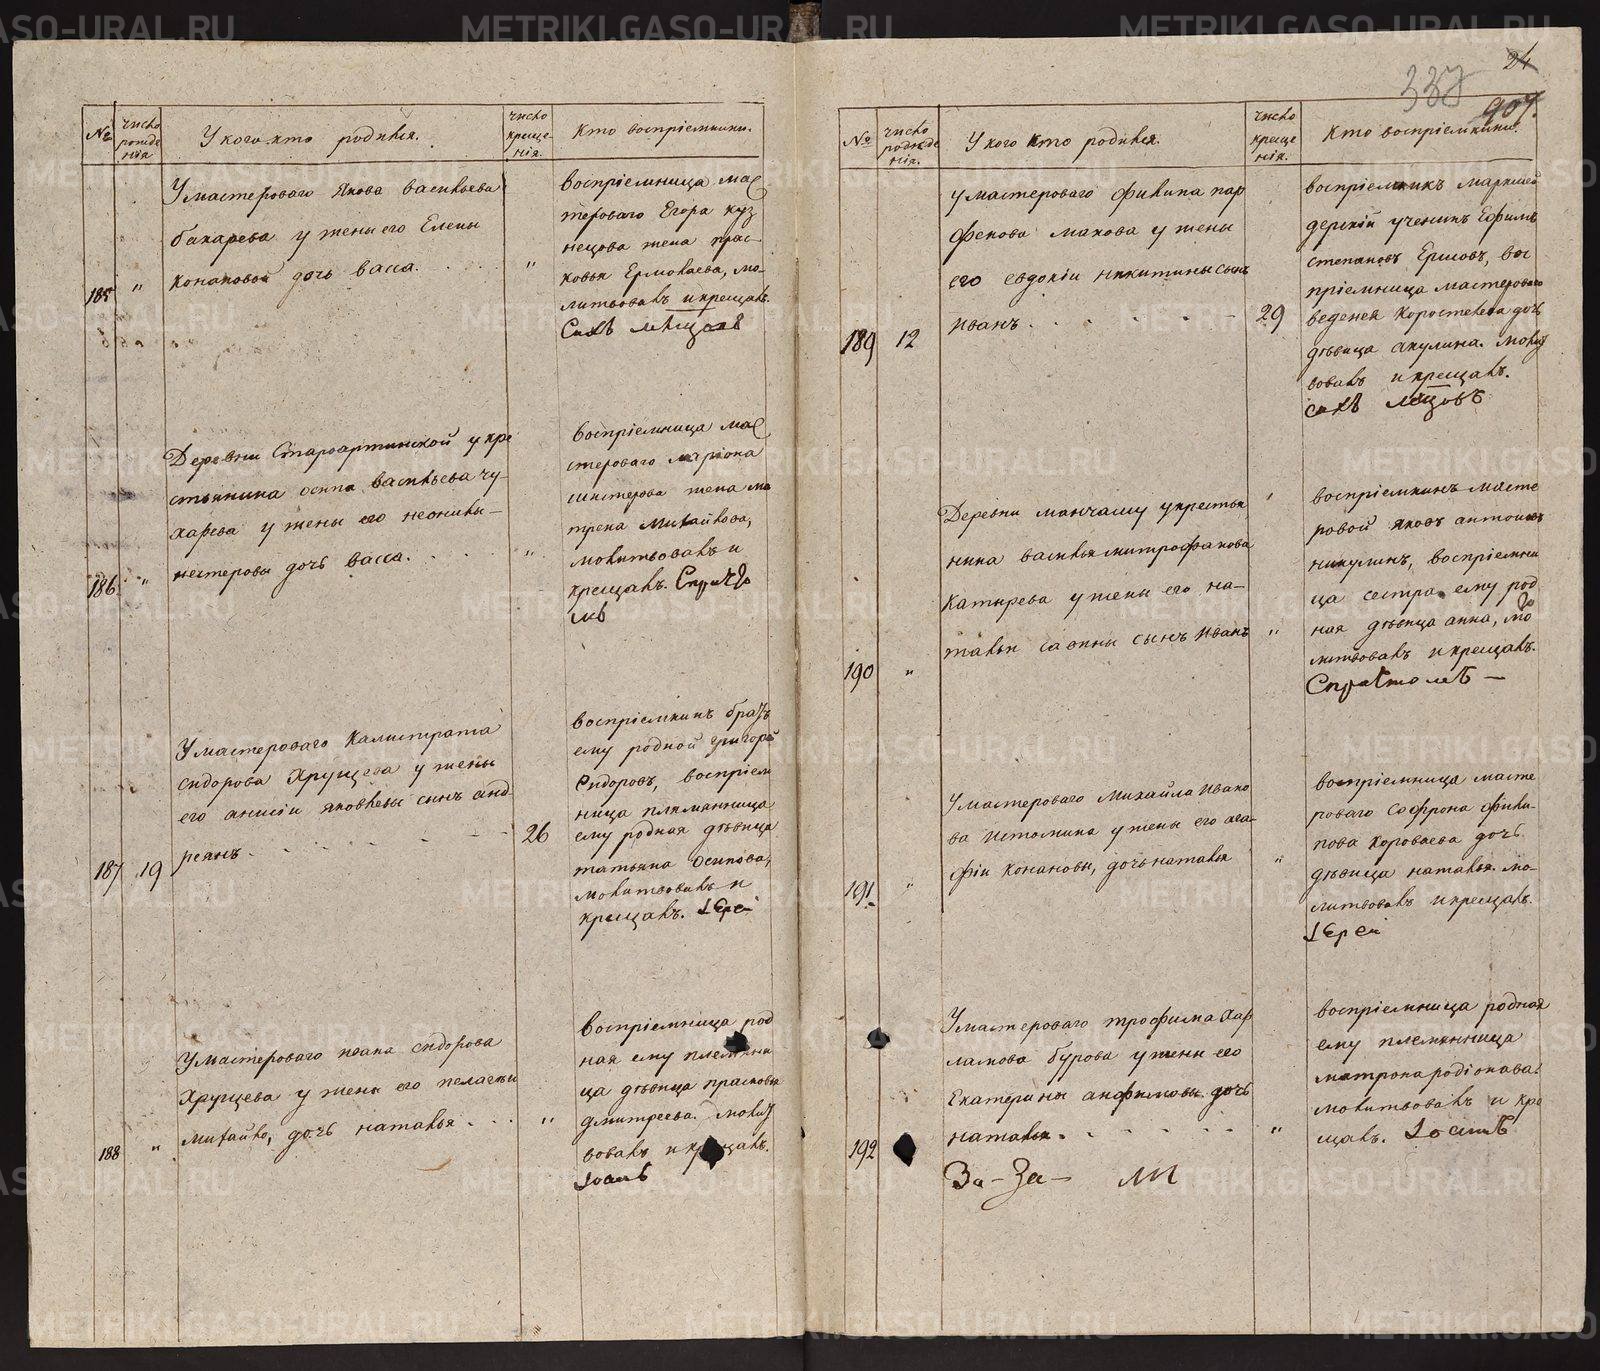 METRIKI.GASO-URAL.RU
№
число рожде нія
У кого кто родился.
число креще- нія.
Кто воспріемники.
185
"
У мастероваго Якова Васильева
бахарева у жены его Елены
конаковой дочь васса.
"
воспріемница мас
тероваго Егора куз
нецова жена прас-
ковья Ермолаева, мо-
литвовалъ и крещалъ.
186
"
Деревни Староартинской у кре
стьянина осипа васильева чу-
харева у жены его неонилы
нестеровы дочь васса.
"
воспріемница мас
тероваго лариона
шестерова жена ма
трена михайлова,
молитвовалъ и
крещалъ.
187
19
У мастероваго Калистрата
сидорова Хрущева у жены
его анисіи яковлевы сынъ анд-
реянъ
26
воспріемникъ братъ
ему родной григорей
Сидоровъ, воспріем
ница племянница
ему родная дѣвица
татьяна осипова,
молитвовалъ и
крещалъ. Іерей
188
"
У мастероваго ивана сидорова
Хрущева у жены его пелагеи
михайло, дочь наталья
"
воспріемница род
ная ему племянни
ца дѣвица прасковья
дмитреева. молит
вовалъ и крещалъ.
Іоаннъ
24
337
907.
№
число рожде нія.
У кого кто родился.
число креще нія.
Кто воспріемники.
189
12
у мастероваго филипа пар
фенова махова у жены
его евдокіи никитины сынъ
иванъ
29
воспріемникъ маркшей
дерскій ученикъ Ефимъ
степановъ Ершовъ, вос
пріемница мастероваго
веденея Коростелева дочь
дѣвица акулина. молит
вовалъ и крещалъ.
190
"
Деревни манчажу у крестья
нина василья митрофанова
Катырева у жены его на-
тальи савины сынъ иванъ
"
воспріемникъ масте
ровой яковъ антоновъ
никулинъ, воспріемни
ца сестра ему род
ная дѣвица анна, мо
литвовалъ и крещалъ.
191.
"
У мастероваго михайла ивано
ва истомина у жены его ага-
фіи конановы, дочь наталья
"
воспріемница масте
роваго софрона фили-
пова Короваева дочь
дѣвица наталья. мо-
литвовалъ и крещалъ.
Іерей
192
У мастероваго трофима хар
ламова бурова у жены его
Екатерины анфимовы дочь
наталья.
"
воспріемница родная
ему племянница
матрона родіонова.
молитвовалъ и кре
щалъ. Іоаннъ